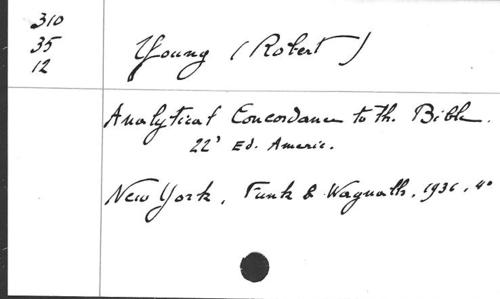 310
35
12
Young (Robert)
Analytical Concordance to th. Bible.
22' Ed. Americ.
New York, Funk & Wagnalls, 1936, 4º